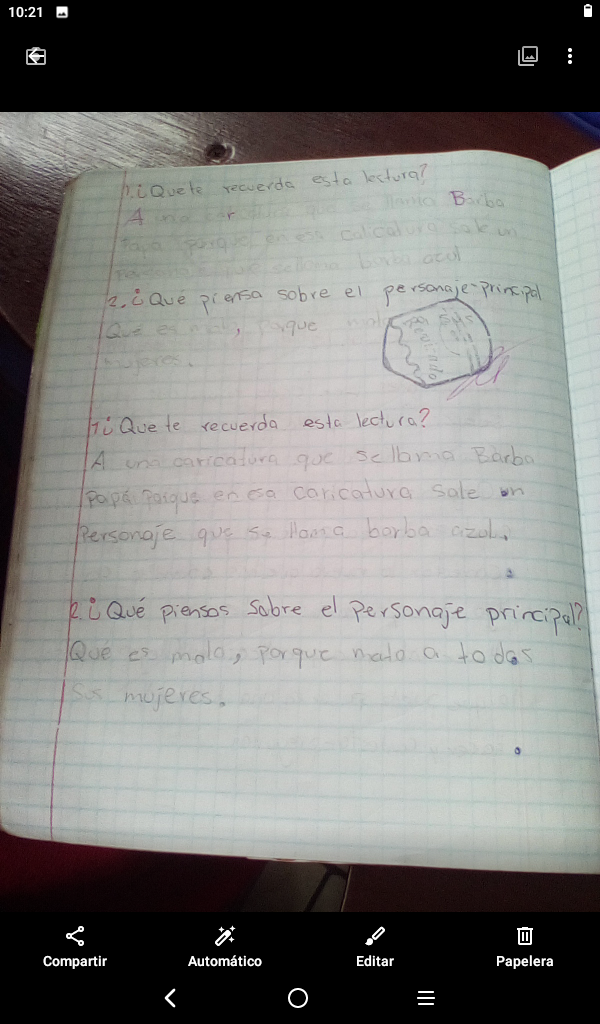 10:21
1.¿Que te recuerda esta lectura?
A una car que se llama Barba
Papa porque en esa caricatura sale un
personaje que se llama barba azul
2.¿Qué piensa sobre el personaje principal
Que es malo, porque mato
mujeres.
1¿Que te recuerda esta lectura?
A una caricatura que se llama Barba
Papá Porque en esa caricatura sale un
Personaje que se llama barba azul.
2.¿Qué piensas sobre el Personaje principal?
Qué es malo, porque mato a todas
Sus mujeres.
Compartir
Automático
Editar
Papelera